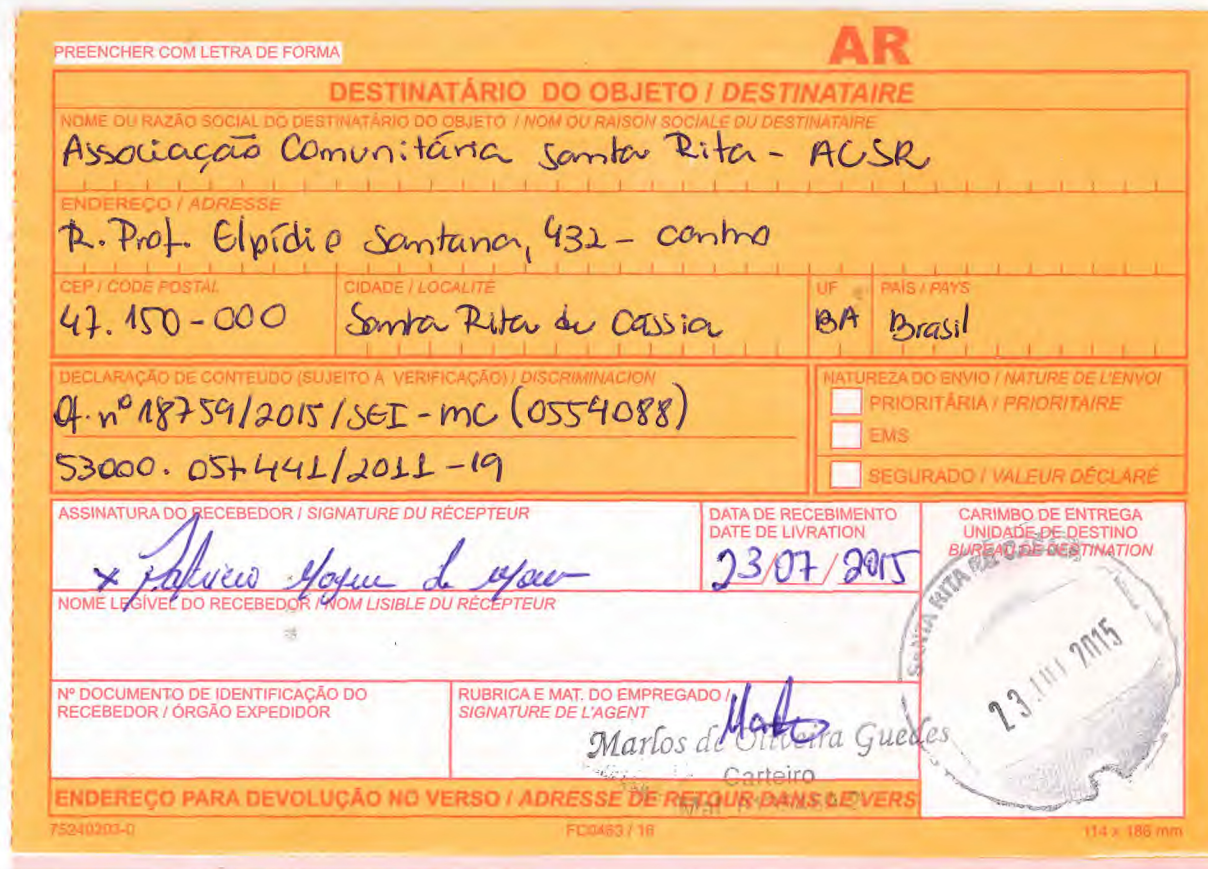 PREENCHER COM LETRA DE FORMA
AR
DESTINATÁRIO DO OBJETO / DESTINATAIRE
NOME OU RAZÃO SOCIAL DO DESTINATÁRIO DO OBJETO / NOM OU RAISON SOCIALE DU DESTINATAIRE
Associação Comunitária Santa Rita - ACSR
ENDEREÇO / ADRESSE
R. Prof. Elpídio Santana, 432 - Centro
CEP / CODE POSTAL CIDADE / LOCALITÉ UF PAÍS / PAYS
47.150-000 Santa Rita de Cássia BA Brasil
DECLARAÇÃO DE CONTEÚDO (SUJEITO À VERIFICAÇÃO) / DISCRIMINACION
NATUREZA DO ENVIO / NATURE DE L'ENVOI
Of. nº 18759/2015/SEI-MC (0554088)
PRIORITÁRIA / PRIORITAIRE
EMS
53000.057441/2011-19
SEGURADO / VALEUR DÉCLARÉ
ASSINATURA DO RECEBEDOR / SIGNATURE DU RÉCEPTEUR
DATA DE RECEBIMENTO
DATE DE LIVRATION
23/07/2015
CARIMBO DE ENTREGA
UNIDADE DE DESTINO
BUREAU DE DESTINATION
SANTA RITA DE CÁSSIA
23 JUL 2015
NOME LEGÍVEL DO RECEBEDOR / NOM LISIBLE DU RÉCEPTEUR
Nº DOCUMENTO DE IDENTIFICAÇÃO DO
RECEBEDOR / ÓRGÃO EXPEDIDOR
RUBRICA E MAT. DO EMPREGADO /
SIGNATURE DE L'AGENT
Marlos de Oliveira Guedes
Carteiro
ENDEREÇO PARA DEVOLUÇÃO NO VERSO / ADRESSE DE RETOUR DANS LE VERS
75240203-0 FC0463 / 16 114 x 186 mm